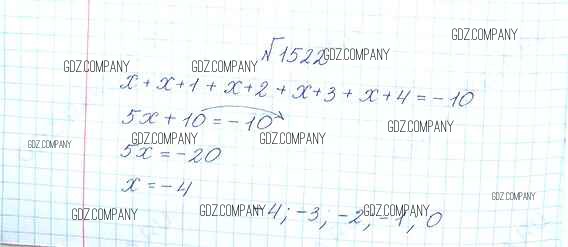 №1522
GDZ.COMPANY
GDZ.COMPANY GDZ.COMPANY GDZ.COMPANY
x + x + 1 + x + 2 + x + 3 + x + 4 = -10
5x + 10 = -10
GDZ.COMPANY
GDZ.COMPANY GDZ.COMPANY GDZ.COMPANY
5x = -20
x = -4
GDZ.COMPANY
GDZ.COMPANY GDZ.COMPANY GDZ.COMPANY
-4; -3; -2; -1; 0